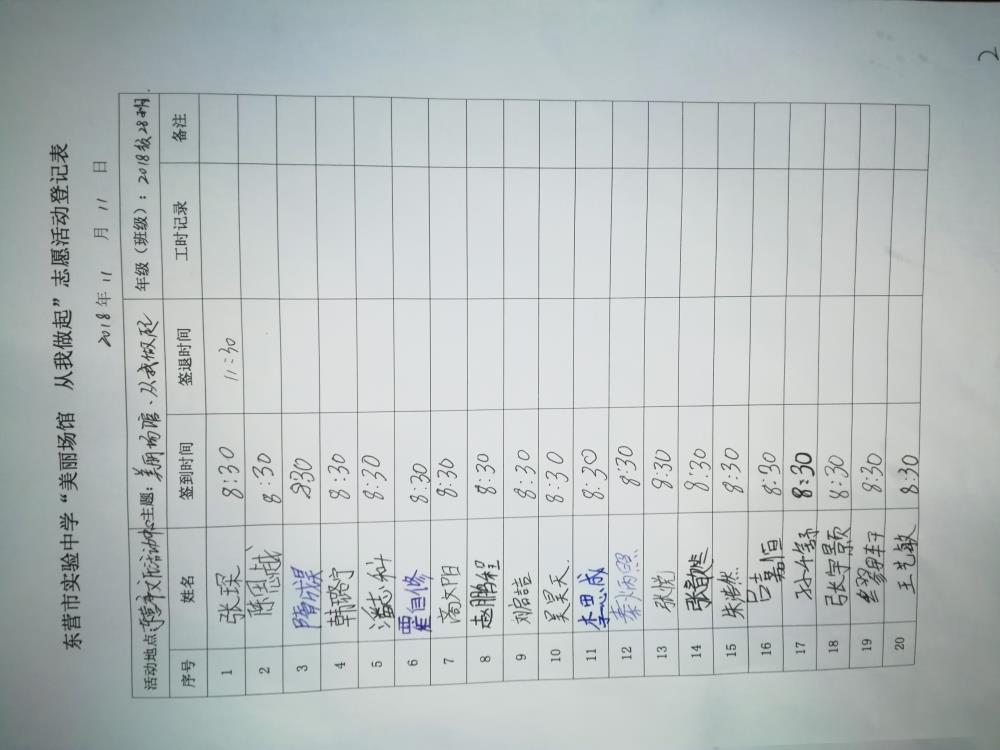 2
东营市实验中学“美丽场馆 从我做起”志愿活动登记表
2018年 11 月 11 日
活动地点:东营市文化活动中心 主题:美丽场馆、从我做起 年级(班级):2018级28班.
序号 姓名 签到时间 签退时间 工时记录 备注
1 张琛 8:30 11:30
2 陈思越 8:30
3 830
4 韩路宁 8:30
5 潘志科 8:30
6 8:30
7 8:30
8 赵鹏程 8:30
9 刘启喆 8:30
10 吴昊天 8:30
11 李田心成 8:30
12 秦炳熙 8:30
13 张悦 8:30
14 8:30
15 朱浩然 8:30
16 吕嘉恒 8:30
17 8:30
18 8:30
19 8:30
20 王艺敏 8:30